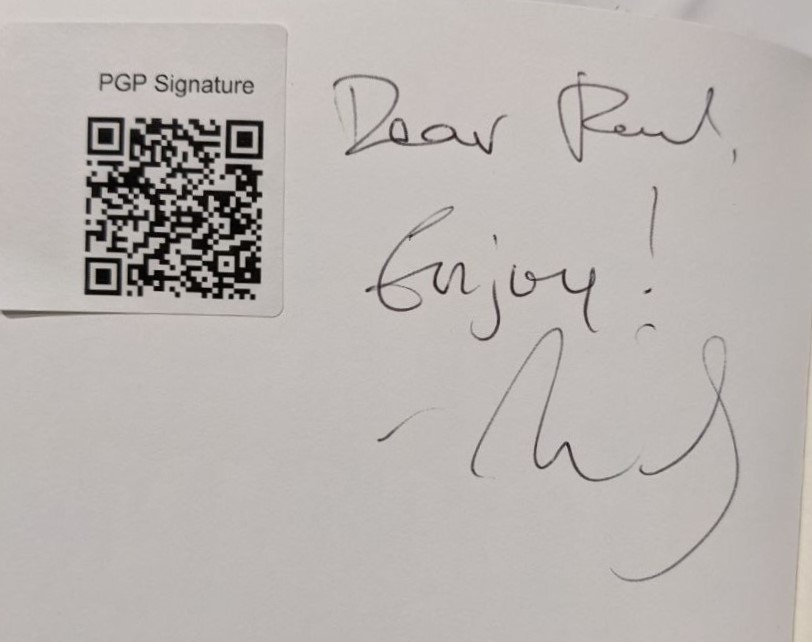 PGP Signature
Dear
Enjoy!